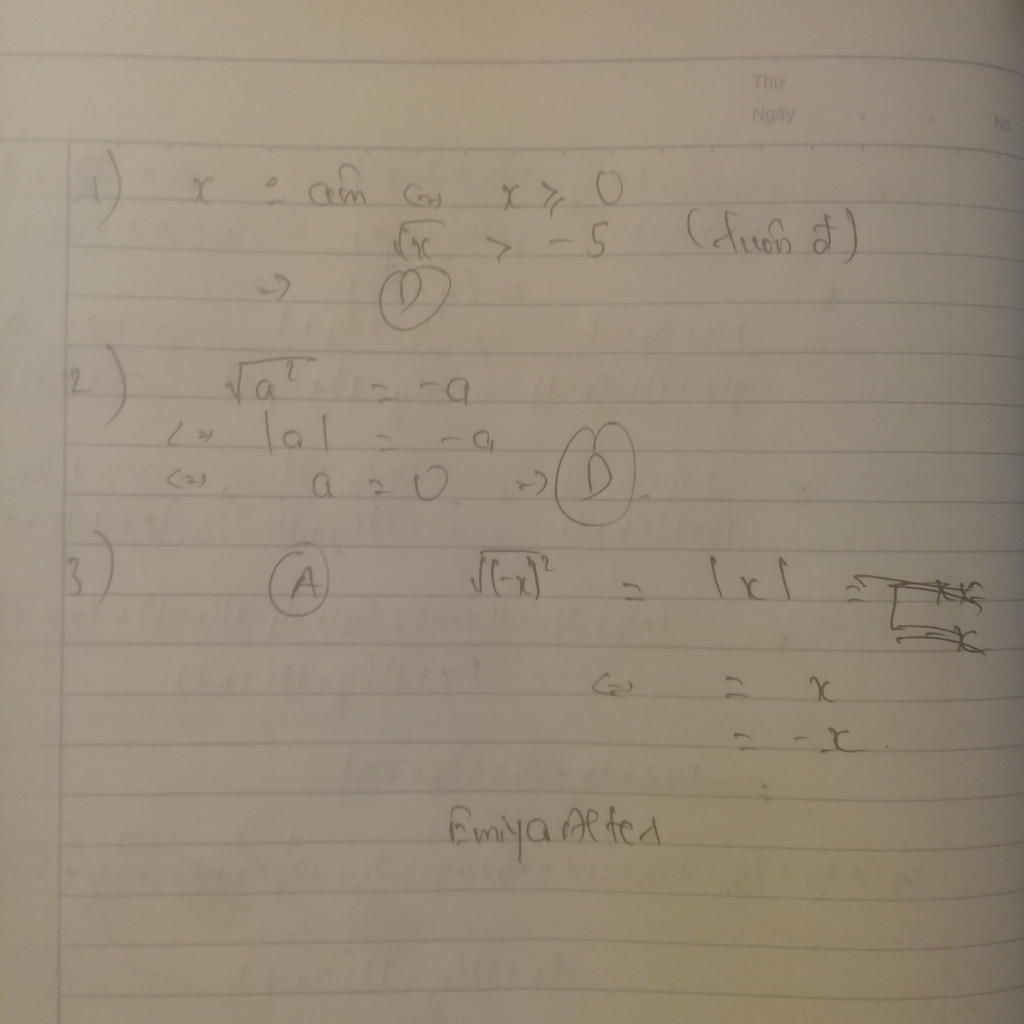 Thứ
Ngày
No.
1) x : căn <=> x ≥ 0
√x > -5 (luôn đ)
=> D
2) √a² = -a
<=> |a| = -a
<=> a = 0 => D
3) A √(-x)² = |x| =
<=> = x
= -x.
EmiyaAlter